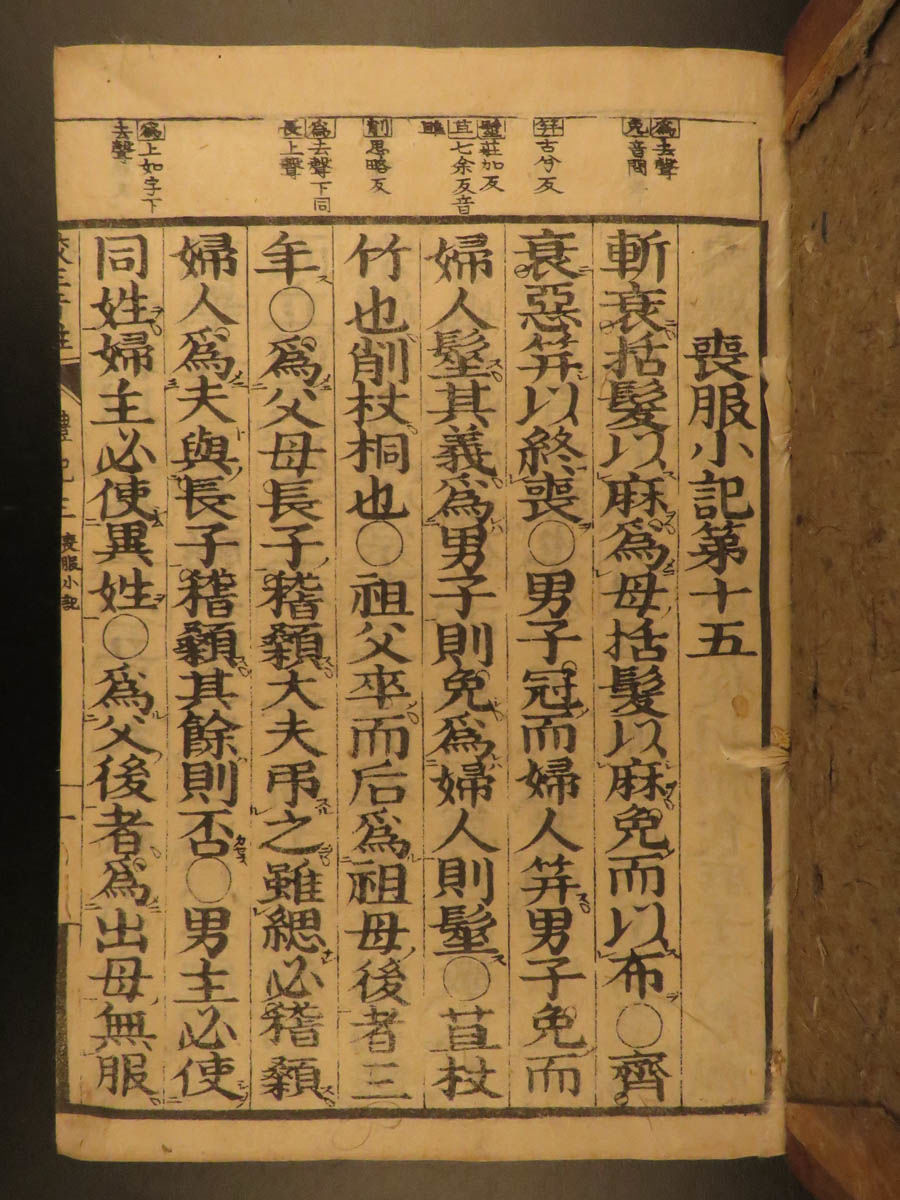 爲去聲
免音問
笄古兮反
髽莊加反
苴七余反音
雎
削思略反
爲去聲下同
長上聲
爲上如字下
去聲
喪服小記第十五
斬衰括髮以麻爲母括髮以麻免而以布〇齊
衰惡笄以終喪〇男子冠而婦人笄男子免而
婦人髽其義爲男子則免爲婦人則髽〇苴杖
竹也削杖桐也〇祖父卒而后爲祖母後者三
年〇爲父母長子稽顙大夫吊之雖緦必稽顙
婦人爲夫與長子稽顙其餘則否〇男主必使
同姓婦主必使異姓〇爲父後者爲出母無服
喪服小記